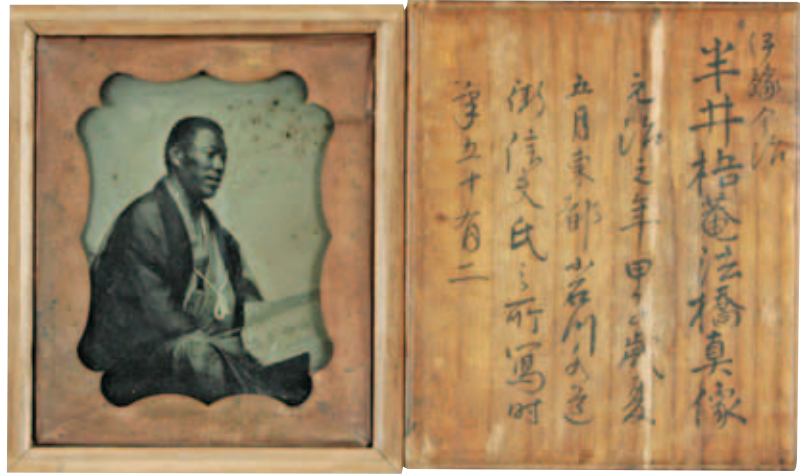 伊豫今治
半井梧菴法橋真像
元治元年甲子歳夏
五月東都小石川水道
街信夫氏之所寫时
年五十有二